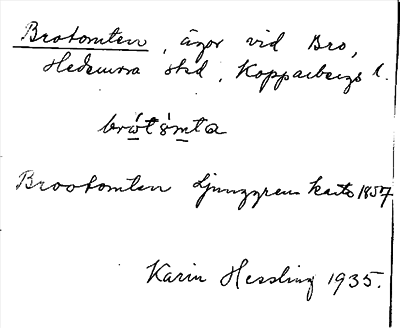 Brotomten, ägor vid Bro,
Hedemora stad, Kopparbergs l.
brot́ómta
Brootomten Ljunggrens karta 1857
Karin Hessling 1935.